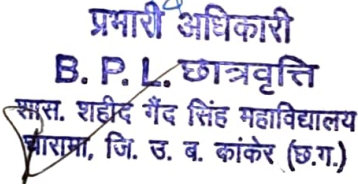 प्रभारी अधिकारी
B. P. L. छात्रवृत्ति
शास. शहीद गैंद सिंह महाविद्यालय
चारामा, जि. उ. ब. कांकेर (छ.ग.)